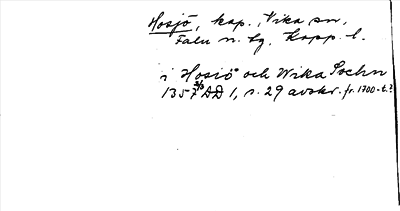 Hosjö, kap., Vika sn,
Falu n. tg, Kopp. l.
i Hosiö och Wika Sochn
1357 3/3 DD 1, s. 29 avskr. fr. 1700-t.?